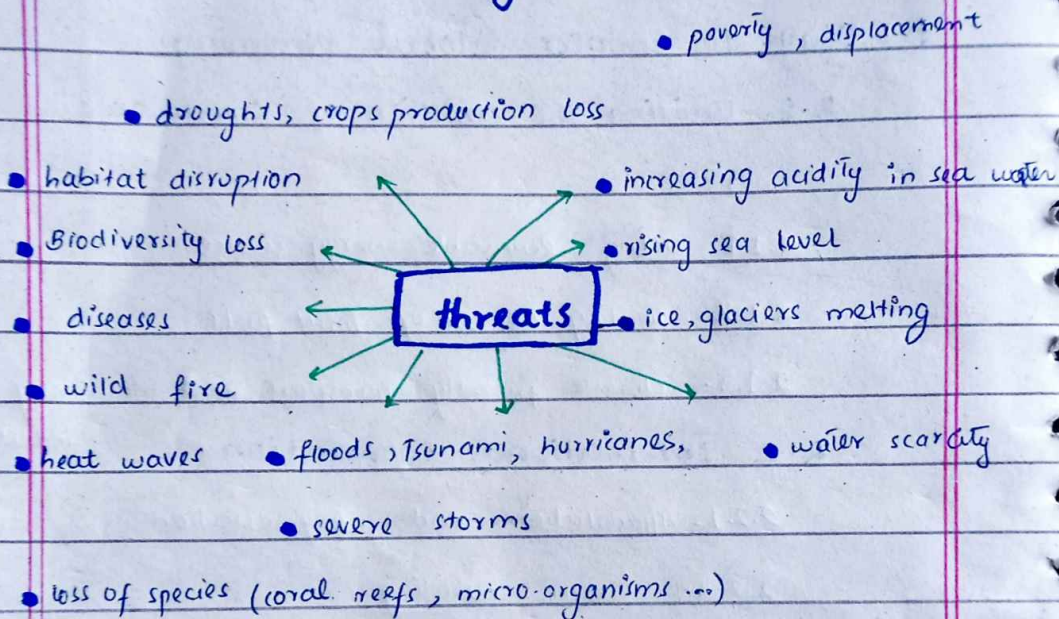 • poverty, displacement
• droughts, crops production loss
• habitat disruption • increasing acidity in sea water
• Biodiversity loss • rising sea level
• diseases threats • ice, glaciers melting
• wild fire
• heat waves • floods, Tsunami, hurricanes, • water scarcity
• severe storms
• loss of species (coral reefs, micro-organisms ...)